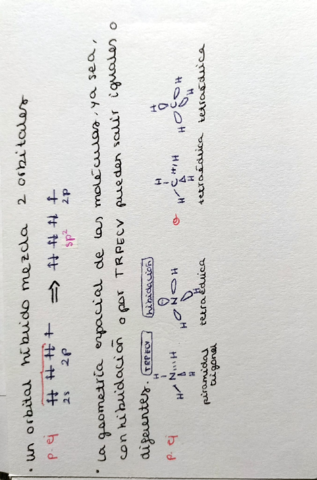 · un orbital híbrido mezcla 2 orbitales
p ej
2s 2p ⇒ sp² 2p
· La geometría espacial de las moléculas, ya sea,
con hibridación o por TRPECV pueden salir iguales o
diferentes. TRPECV hibridación
p ej
H N H H H N O H H C H H H C O H H
piramidal trigonal tetraédrica tetraédrica tetraédrica